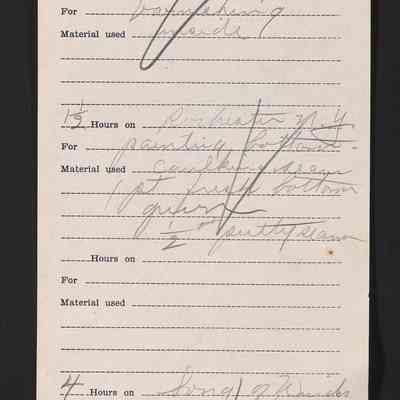 For varnishing
Material used inside
1½ Hours on Rochester N.Y.
For painting bottom -
Material used caulking seam
1 pt fresh bottom
green
½ putty seam
Hours on
For
Material used
4 Hours on Song of Winds